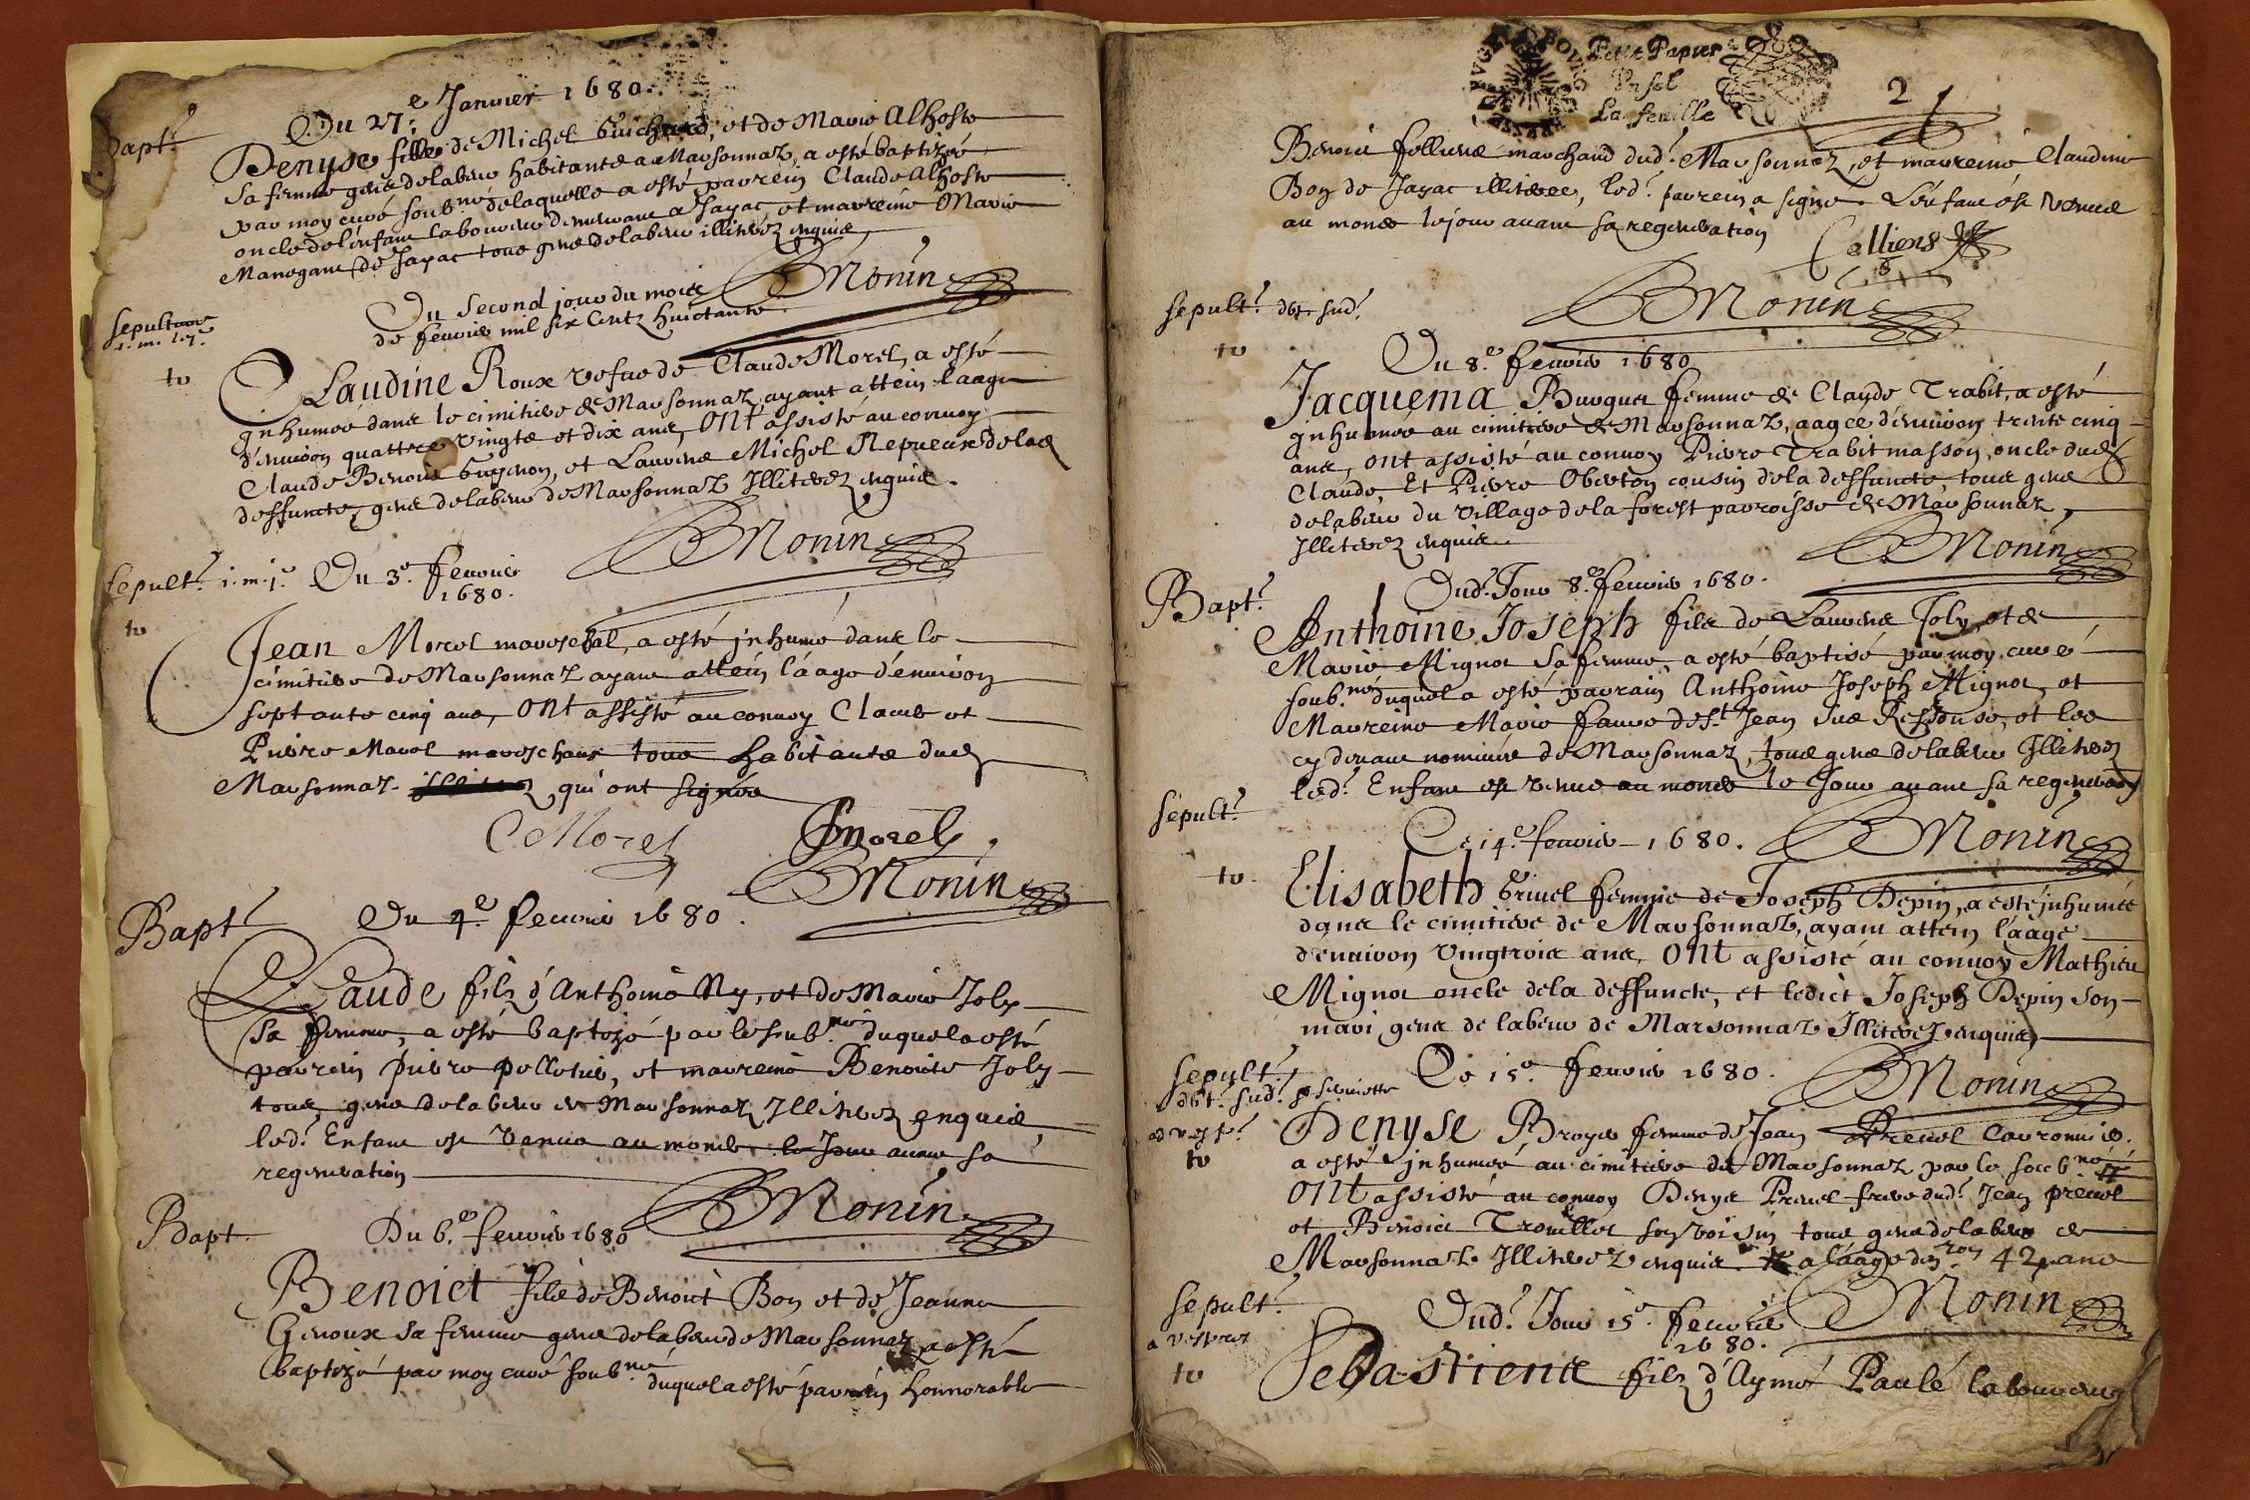 Bapt.
Du 27.e Janvier 1680.
Denyse fille de Michel Guichard, et de Marie Alhoste
sa femme gens de labeur habitants a Marsonnaz, a esté baptizée
par moy curé soub.né de laquelle a esté parrein Claude Alhoste
oncle de l'enfant laboureur demeurant a Jayac et marreine Marie
Manegant de Jayac tous gens de labeur illiterez enquis
BMonin
Sepulture
Du second jour du mois
de fevrier mil six centz huictante
to
Claudine Roux vefue de Claude Morel, a esté
inhumée dans le cimitiere de Marsonnaz, ayant attein l'aage
d'environ quattre vingts et dix ans, ont assisté au convoy
Claude Benoit, et Laurens Michel Nepueux de lad
deffuncte, gens de labeur de Marsonnaz Illiterez enquis.
BMonin
Sepult. Du 3.e fevrier
1680.
to
Jean Morel mareschal, a esté inhumé dans le
cimitiere de Marsonnaz ayant attein l'aage d'environ
septante cinq ans, ont assisté au convoy Claude et
Pierre Morel mareschaux tous habitants dud
Marsonnaz qui ont signés
CMorel PMorel
BMonin
Bapt. Du 4.e fevrier 1680.
Claude filz d'Anthoine Ny, et de Marie Joly
sa femme, a esté baptizé par le soub.né duquel a esté
parrein Pierre pelletier, et marreine Benoite Joly
tous gens de labeur de Marsonnaz Illiterez enquis,
led. Enfant est venu au monde le Jour avant sa
regeneration
BMonin
Bapt. Du 6.e fevrier 1680
Benoict filz de Benoict Bon et de Jeanne
Genoux sa femme gens de labeur de Marsonnaz a esté
baptizé par moy curé soub.né duquel a esté parrein honnorable
Petit Papier
Un sol
La feuille
2
Benoict marchand dud. Marsonnaz, et marreine Claudine
Bon de Jayac illiteree, led. parrein a signé. L'enfant est venu
au monde le jour avant sa regeneration
BMonin
sepult. dt. sud.
to
Du 8.e fevrier 1680
Jacquema Burguet femme de Claude Trabit, a esté
inhumée au cimitiere de Marsonnaz, aagée d'environ trente cinq
ans, ont assisté au convoy Pierre Trabit masson, oncle dud
Claude, Et Pierre Oberton cousin de la deffuncte, tous gens
de labeur du village de la forest parroisse de Marsonnaz,
Illiterez enquis.
BMonin
Bapt.
Dud. Jour 8.e fevrier 1680.
Anthoine Joseph filz de Laurens Joly, et de
Marie Mignot sa femme, a esté baptisé par moy curé
soub.né duquel a esté parrain Anthoine Joseph Mignot, et
Marreine Marie favre de S.t Jean sus Ressouse, et les
cy devant nommés de Marsonnaz, tous gens de labeur Illiterez
led. Enfant est venu au monde le Jour avant sa regeneration
BMonin
Sepult.
Ce 14.e fevrier 1680.
to
Elisabeth Griuel femme de Joseph Depin, a esté inhumée
dans le cimitiere de Marsonnaz, ayant attein l'aage
d'environ vingtrois ans, ont assisté au convoy Mathieu
Mignot oncle de la deffuncte, et ledict Joseph Depin son
mari gens de labeur de Marsonnaz Illiterez enquis,
BMonin
Sepult.
dt. sud.
Ce 15.e fevrier 1680.
to
Denyse Broyer femme de Jean Preuel
a esté inhumée au cimitiere de Marsonnaz par le soub.né
ont assisté au convoy Denys Preuel frere dud. Jean preuel
et Benoict Trouillet son voisin tous gens de labeur de
Marsonnaz Illiterez enquis a l'aage d'environ 42 ans
BMonin
Sepult.
a vespres
Dud. Jour 15.e fevrier
1680.
to
Sebastiens filz d'Aymé Paulé laboureur